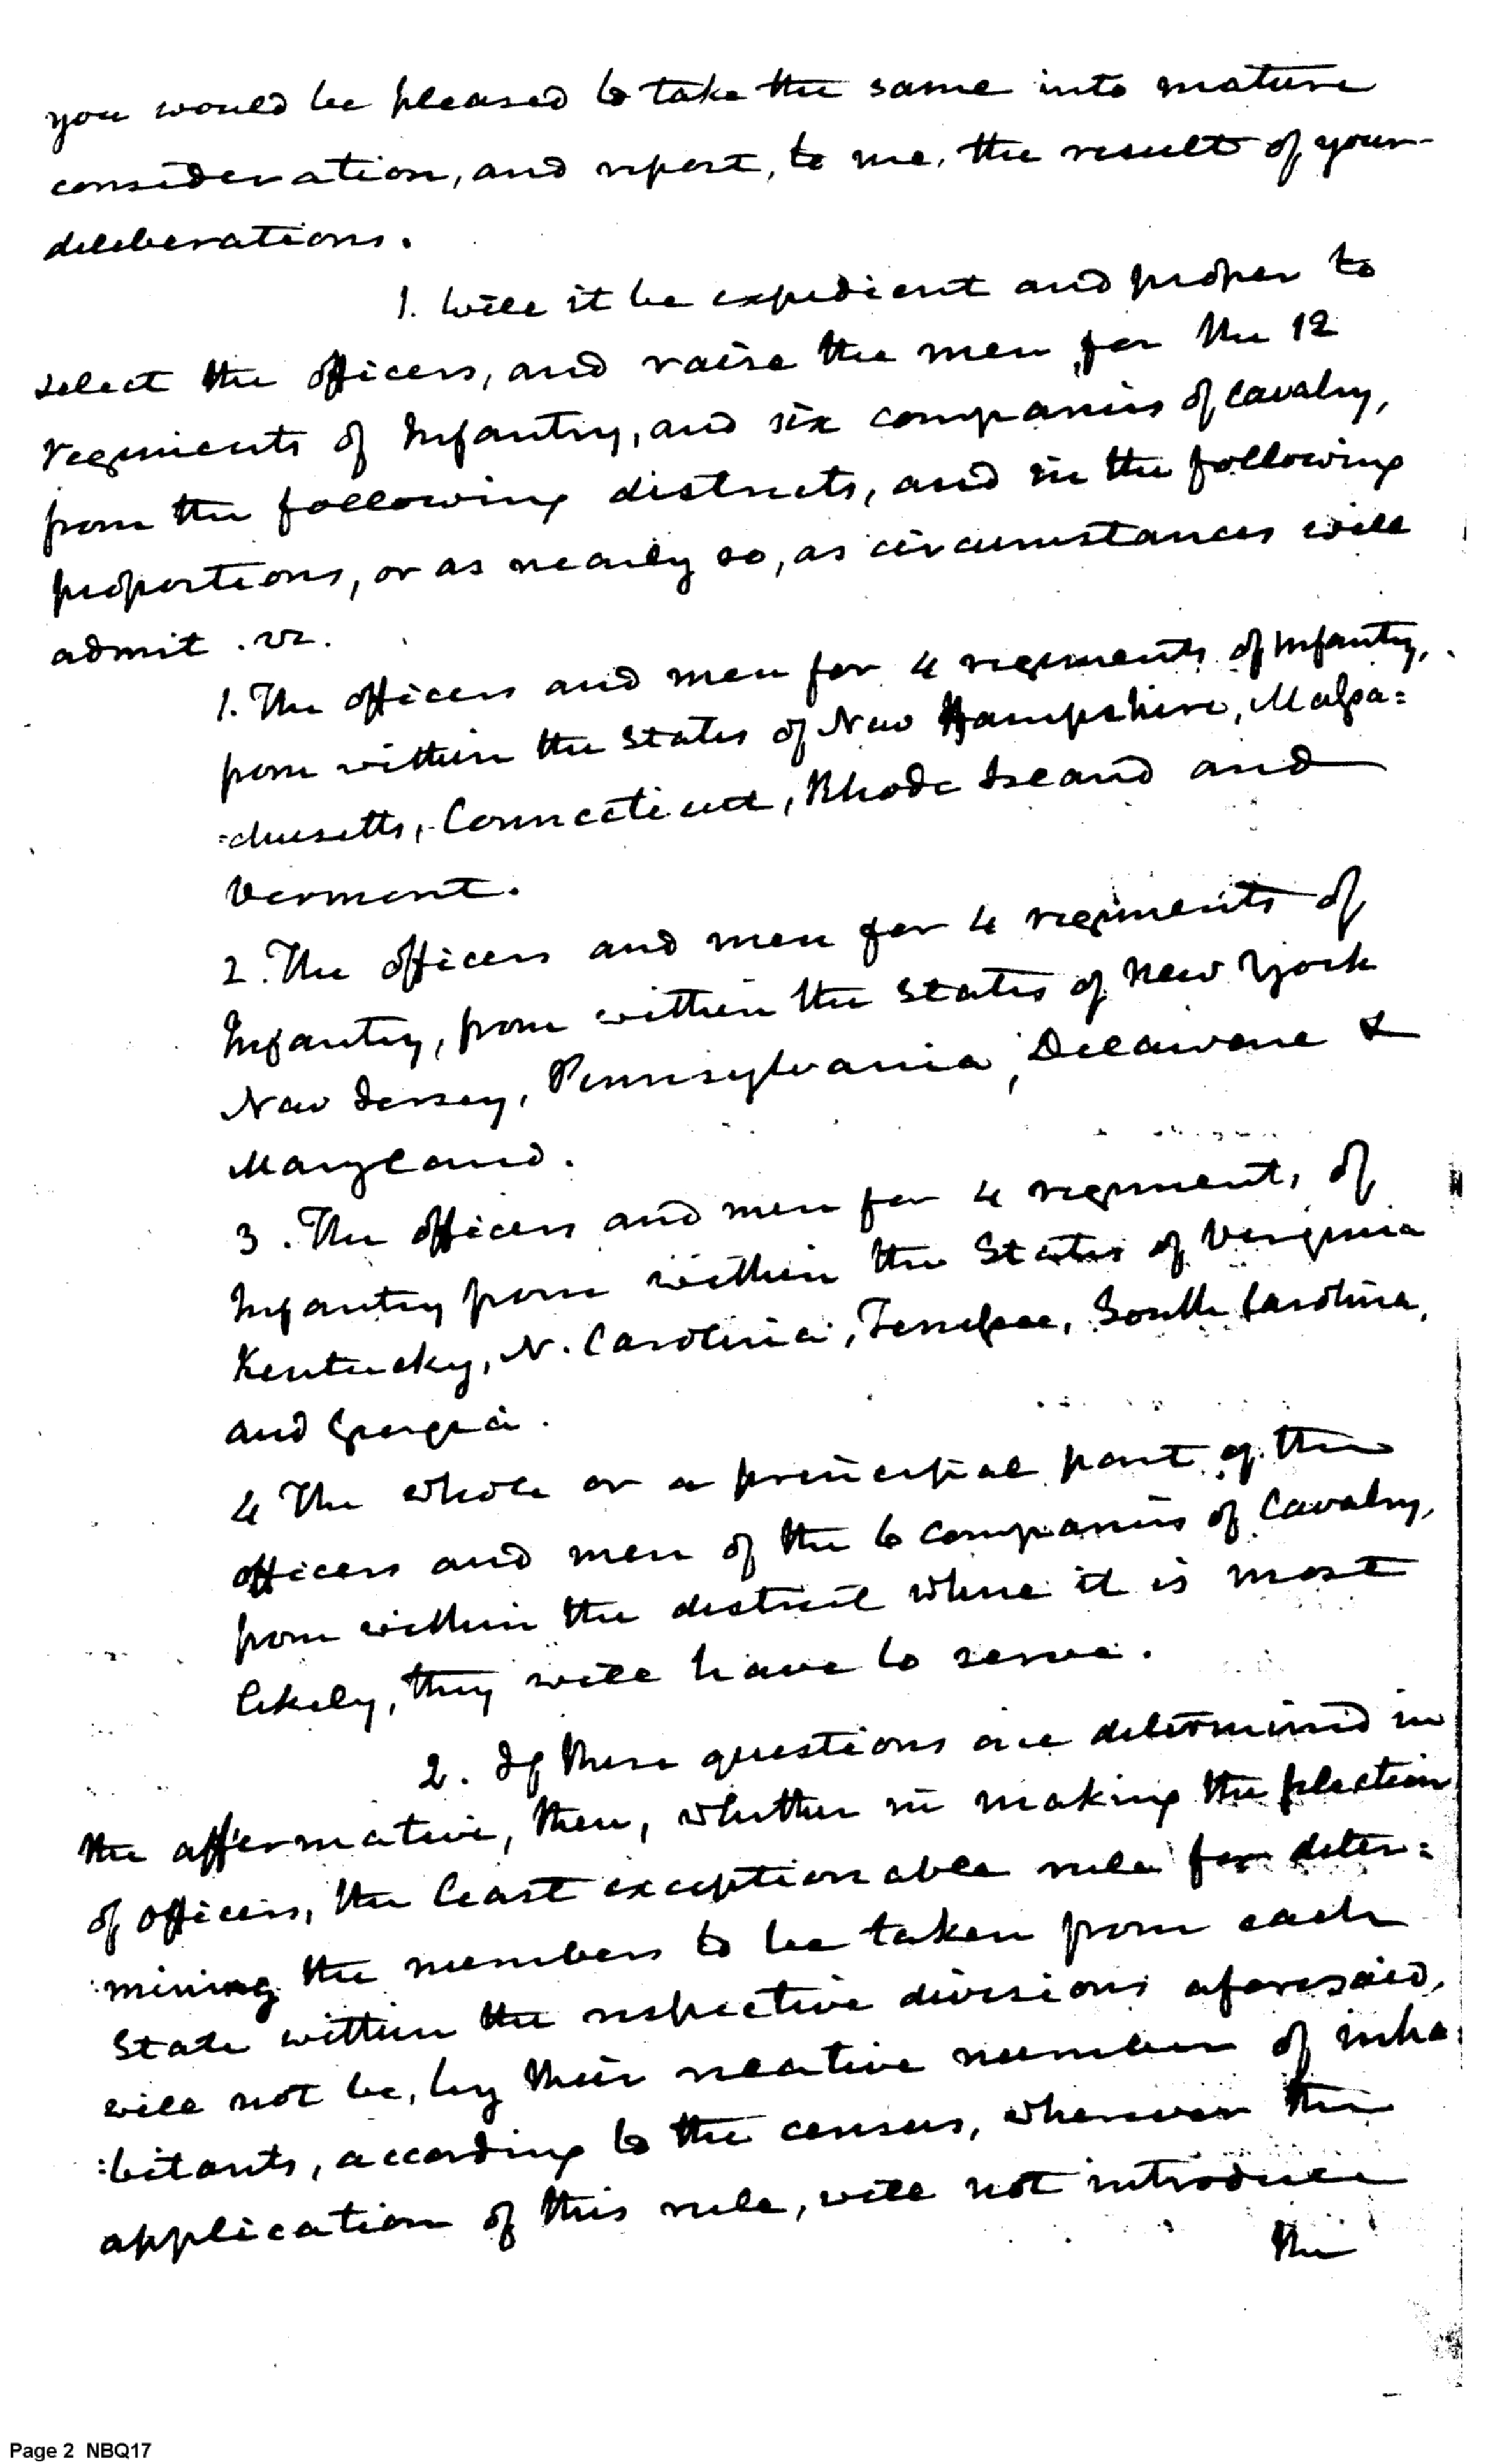 you would be pleased to take the same into mature
consideration, and report, to me, the result of your
deliberations.
1. Will it be expedient and proper to
select the officers, and raise the men for the 12
regiments of Infantry, and six companies of Cavalry,
from the following districts, and in the following
proportions, or as nearly so, as circumstances will
admit. vz.
1. The officers and men for 4 regiments of Infantry,
from within the States of New Hampshire, Massa=
=chusetts, Connecticutt, Rhode Island and
Vermont.
2. The officers and men for 4 regiments of
Infantry, from within the States of New York
New Jersey, Pennsylvania, Delaware &
Maryland.
3. The officers and men for 4 regiments of
Infantry from within the States of Virginia
Kentucky, N. Carolina, Tennessee, South Carolina,
and Georgia.
4 The whole or a principal part of the
officers and men of the 6 companies of Cavalry,
from within the district where it is most
likely, they will have to serve.
2. If these questions are determined in
the affirmative, then, whether in making the selection
of officers, the least exceptionable rule for deter=
:mining the numbers to be taken from each
State within the respective divisions aforesaid,
will not be, by their relative number of inha:
:bitants, according to the census, wherever the
application of this rule, will not introduce
the
Page 2 NBQ17